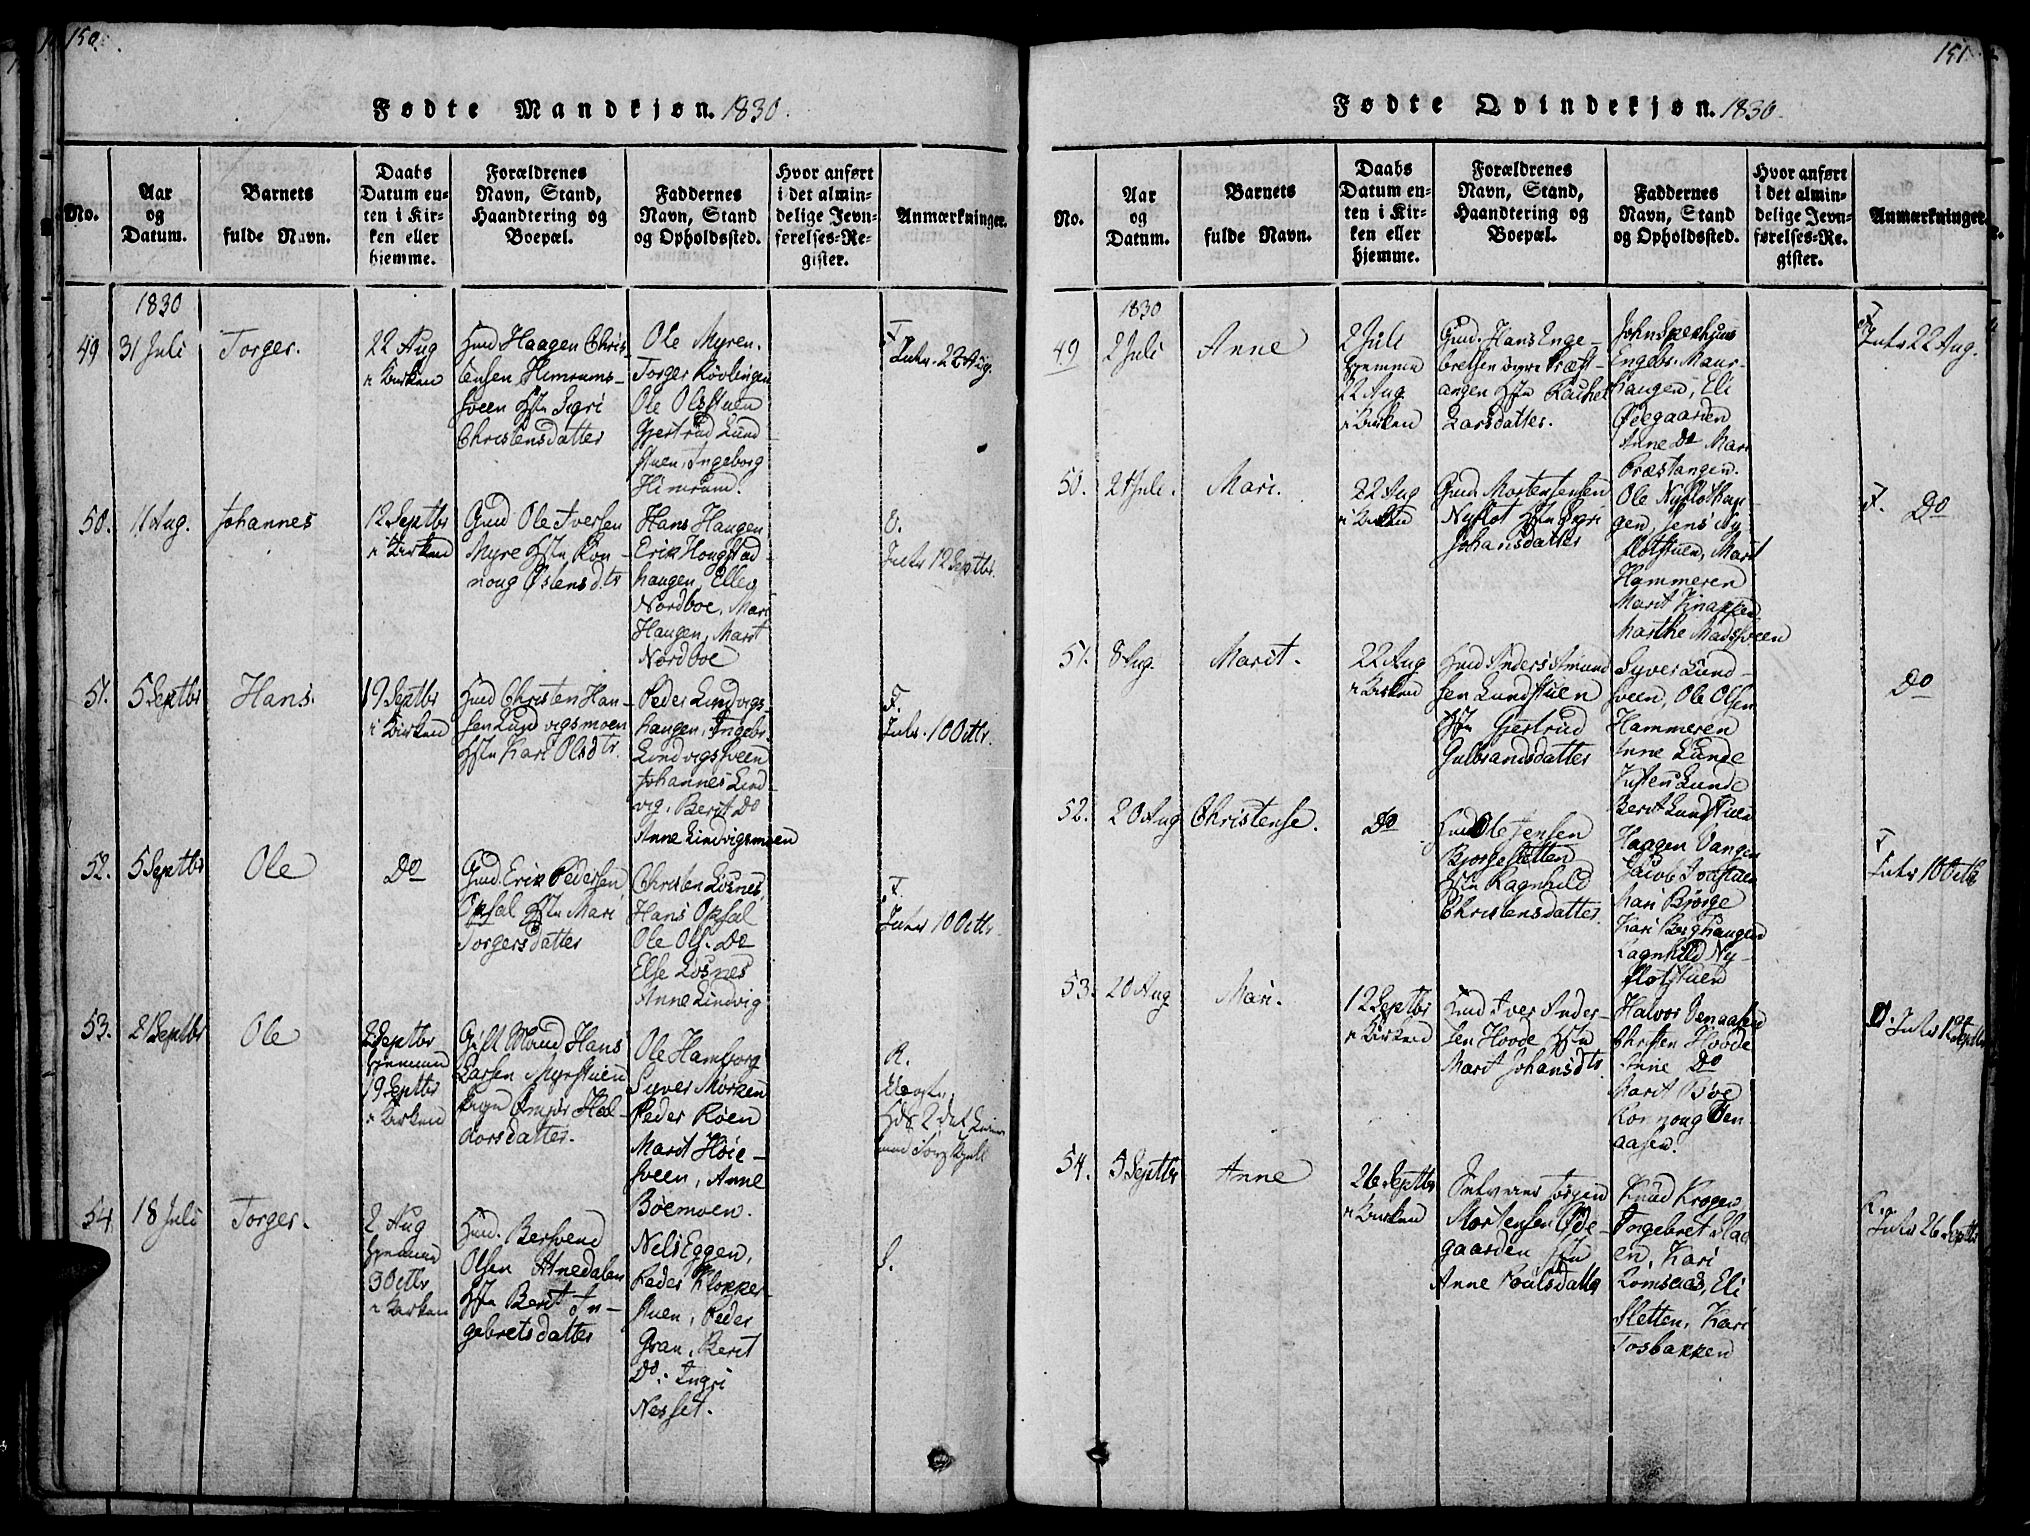 150.
Fødte Mandkjøn. 1830.
No.
Aar
og
Datum.
Barnets
fulde Navn.
Daabs
Datum en-
ten i Kir-
ken eller
hjemme.
Forældrenes
Navn, Stand,
Haandtering og
Boepæl.
Faddernes
Navn, Stand
og Opholdssted.
Hvor anført
i det almin-
delige Jevn-
førelses-Re-
gister.
Anmærkninger.
1830
49
31 Juli
Torger.
22 Aug
i Kirken
Gmd Haagen Chris-
tensen Himrums-
sveen Hst Sigri
Christensdatter
Ole Myren.
Torger Kövlingen
Ole Olsstuen
Gjertrud Lund-
stuen, Ingeborg
Himrum.
F.
Intr. 22 Aug.
50.
11 Aug.
Johannes
12 Septbr
i Kirken
Gmd Ole Iversen
Myre Hst Ron-
noug Østensdtr
Hans Haugen
Erik Hougstad-
haugen, Ellev
Nordboe, Mari
Haugen, Marit
Nordboe
V.
Intr 12 Septbr.
51.
5 Septbr
Hans.
19 Septbr
i Kirken
Hmd Christen Han-
sen Lundvigsmoen
Hst Kari Olsdtr.
Peder Lindvigs-
haugen, Ingebr.
Lindvigssveen
Johannes Lind-
vig, Berit Do
Anne Lindvigsmoen
F.
Intr. 10 Octbr.
52.
5 Septbr
Ole
Do
Gmd. Erik Pedersen
Opsal Hst Mari
Torgersdatter
Christen Losnes
Hans Opsal
Ole Ols. Do
Else Losnes
Anne Lindvig
F.
Intr 10 Octbr.
53.
2 Septbr
Ole
2 Septbr
hjemme
19 Septbr
i Kirken
Gift Mand Hans
Larsen Myrstuen
Pige Amsør Hal-
dorsdatter.
Ole Hamborg
Syver Mörken
Peder Röen
Marit Höie-
sveen, Anne
Böemoen.
R.
Uægte,
54
18 Juli
Torger.
2 Aug
hjemme
3 Octbr
i Kirken
Hmd. Bersvend
Olsen Atnedalen
Hst Berit In-
gebretsdatter
Nels Eggen,
Peder Klokker-
stuen, Peder
Gran, Berit
Do. Ingri
Nesset.
S.
151
Fødte Qvindekjøn. 1830.
No.
Aar
og
Datum.
Barnets
fulde Navn.
Daabs
Datum en-
ten i Kir-
ken eller
hjemme.
Forældrenes
Navn, Stand,
Haandtering og
Boepæl.
Faddernes
Navn, Stand
og Opholdssted.
Hvor anført
i det almin-
delige Jevn-
førelses-Re-
gister.
Anmærkninger.
1830
49
2 Juli
Anne
2 Juli
hjemme
22 Aug
i Kirken
Gmd. Hans Enge-
bretsen øvre Præst-
angen Hst Rachel
Larsdatter.
Engebr. Maur-
haugen, Eli
Ødegaarden
Anne Do Mari
Præstangen.
F.
Intr 22 Aug.
50.
Mari.
22 Aug
i Kirken
Gmd. Morten Jensen
Nyflot Hst Sigri
Johansdatter
Ole Nyflothau-
gen, Jens Ny-
flotstuen, Marit
Hammeren
Marit Knappen
Marthe Madssveen
F.
Do
51.
8 Aug.
Marit.
22 Aug
i Kirken
Hmd Anders Amund
sen Lundstuen
Hst Gjertrud
Gulbrandsdatter
Syver Lund-
sveen, Ole Olsen
Hammeren
Anne Lunde
Kisten Lunde
Berit Lundstuen
Do
52.
20 Aug
Christense.
Do
Hmd Ole Jensen
Bjorgesletten
Hst Ragnhild
Christensdatter
Haagen Vangen
Jacob
Mari Bjørge
Kari Berghaugen
Ragnhild Ny-
flotstuen
F
Intr 10 Octbr
53.
20 Aug
Mari.
12 Septbr
i Kirken
Hmd Iver Ander-
sen Hovde Hst
Marit Johansdtr
Halvor Venaasen
Christen Hovde
Anne Do
Marit Böe
Ronnoug Ven-
aasen.
V. Intr 12 Septbr
54.
5 Septbr
Anne
26 Septbr
i Kirken
Selveier Jørgen
Mortensen Øde-
gaarden Hst
Anne Poulsdatter
Knud Krogen
Ingebret Slaa-
en, Kari
Romsaas, Eli
Sletten, Kari
Tosbakken
R.
Intr 26 Septbr